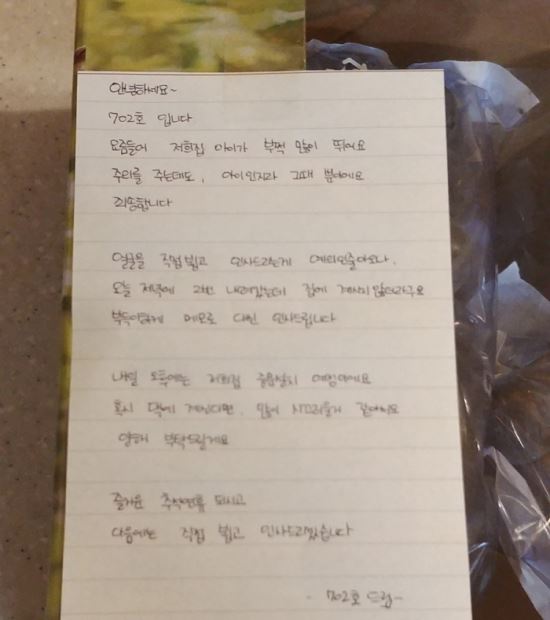 안녕하세요~
702호 입니다
요즘들어 저희집 아이가 부쩍 많이 뛰어요
주의를 주는데도, 아이인지라 그때 뿐이에요
죄송합니다
얼굴을 직접 뵙고 인사드리는게 예의인줄아오나,
오늘 저녁에 2번 내려갔는데 집에 계시지 않더라구요
부득이하게 메모로 대신 인사드립니다
내일 오후에는 저희집 중문설치 예정이에요
혹시 댁에 계신다면, 많이 시끄러울거 같아요
양해 부탁드릴게요
즐거운 추석연휴 되시고
다음에는 직접 뵙고 인사드리겠습니다
- 702호 드림-